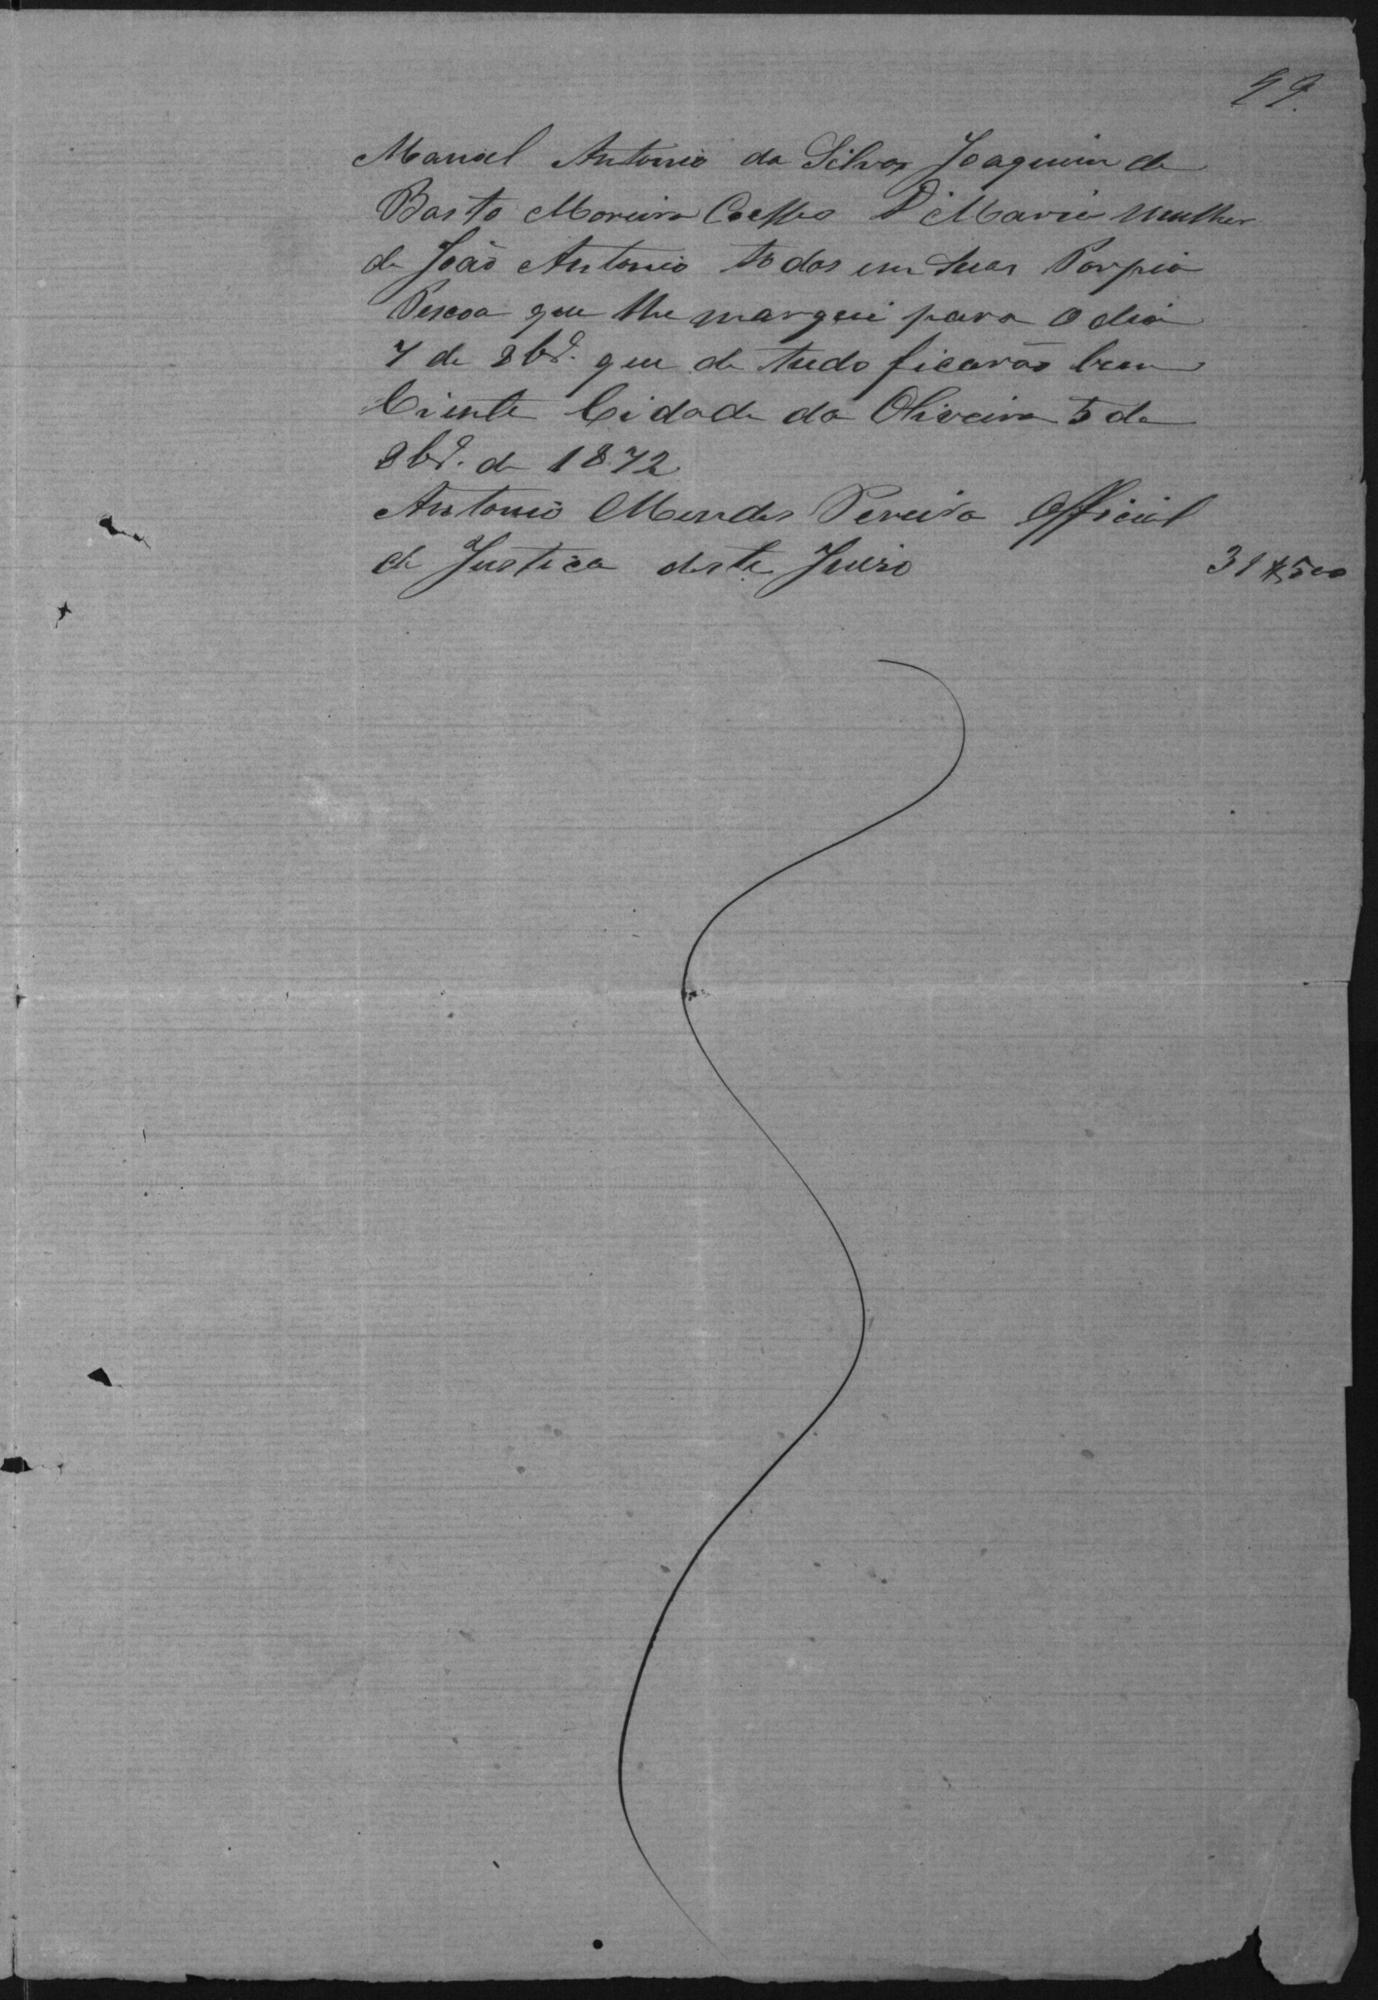 Manoel Antonio da Silva Joaquim de
Basto Moreira Coelho D. Maria mulher
de João Antonio todos em suas Porpia
Pescoa que lhe marquei para o dia
7 de 8brº. que de tudo ficarão bem
Ciente Cidade da Oliveira 5 de
8brº. de 1872
Antonio Mendes Pereira Official
de Justica deste Juizo
31$500